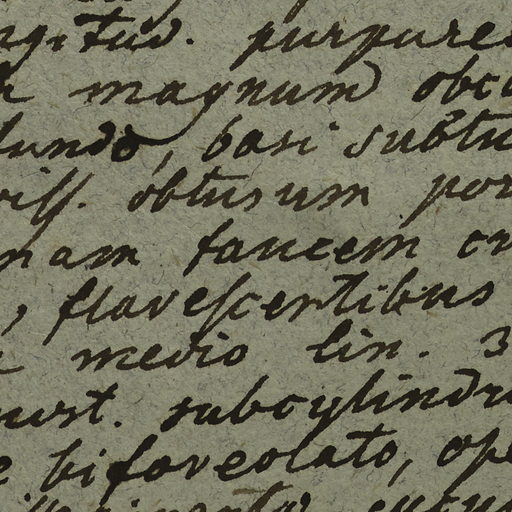 purpure
magnum obco
lundo, basi subtu
iss. obtusum por
nam faucem cr
, flavescentibus
medio lin. 3
purst. subcylindr
e bifoveolato, ope